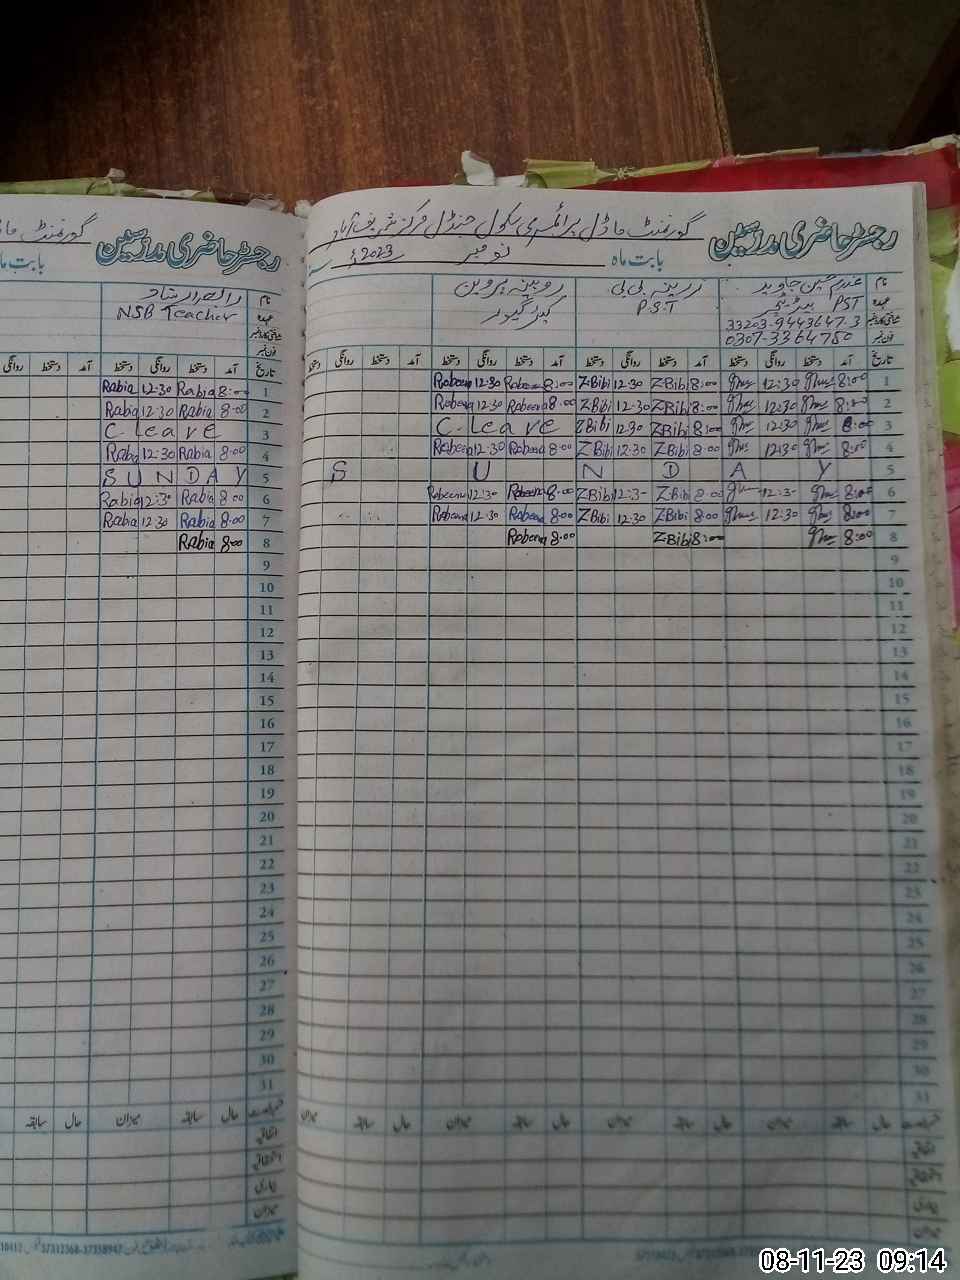 رجسٹر حاضری مدرسین گورنمنٹ ماڈل پرائمری سکول جنڈل مرکز شریف آباد
بابت ماہ نومبر 2023ء
نام زرینہ بی بی روبینہ پروین
عہدہ PST ہیڈ ٹیچر P.S.T کیئر گیور
33203-9443647-3
فون نمبر 0307-3364780
تاریخ آمد دستخط روانگی دستخط آمد دستخط روانگی دستخط آمد دستخط روانگی دستخط آمد دستخط روانگی
1 8:00 12:30 8:00 ZBibi 12:30 ZBibi 8:00 Rabeena 12:30 Rabeena
2 8:00 12:30 8:00 ZBibi 12:30 ZBibi 8:00 Rabeena 12:30 Rabeena
3 8:00 12:30 8:00 ZBibi 12:30 ZBibi C. leave
4 8:00 12:30 8:00 ZBibi 12:30 ZBibi 8:00 Rabeena 12:30 Rabeena
5 S U N D A Y
6 8:00 12:3- 8:00 ZBibi 12:3- ZBibi 8:00 Rabeena 12:30 Rabeena
7 8:00 12:30 8:00 ZBibi 12:30 ZBibi 8:00 Rabeena 12:30 Rabeena
8 8:00 8:00 ZBibi 8:00 Rabeena
9
10
11
12
13
14
15
16
17
18
19
20
21
22
23
24
25
26
27
28
29
30
31
حال سابقہ میزان حال سابقہ میزان حال سابقہ میزان حال سابقہ میزان
رجسٹر حاضری مدرسین گورنمنٹ
بابت ماہ
نام رابعہ ارشاد
عہدہ NSB Teacher
فون نمبر
تاریخ آمد دستخط روانگی دستخط آمد دستخط روانگی
1 8:00 Rabia 12:30 Rabia
2 8:00 Rabia 12:30 Rabia
3 C. leave
4 8:00 Rabia 12:30 Rabia
5 S U N D A Y
6 8:00 Rabia 12:30 Rabia
7 8:00 Rabia 12:30 Rabia
8 8:00 Rabia
9
10
11
12
13
14
15
16
17
18
19
20
21
22
23
24
25
26
27
28
29
30
31
حال سابقہ میزان حال سابقہ
اتفاقیہ
بیماری
میزان
37312368-37338947
08-11-23 09:14